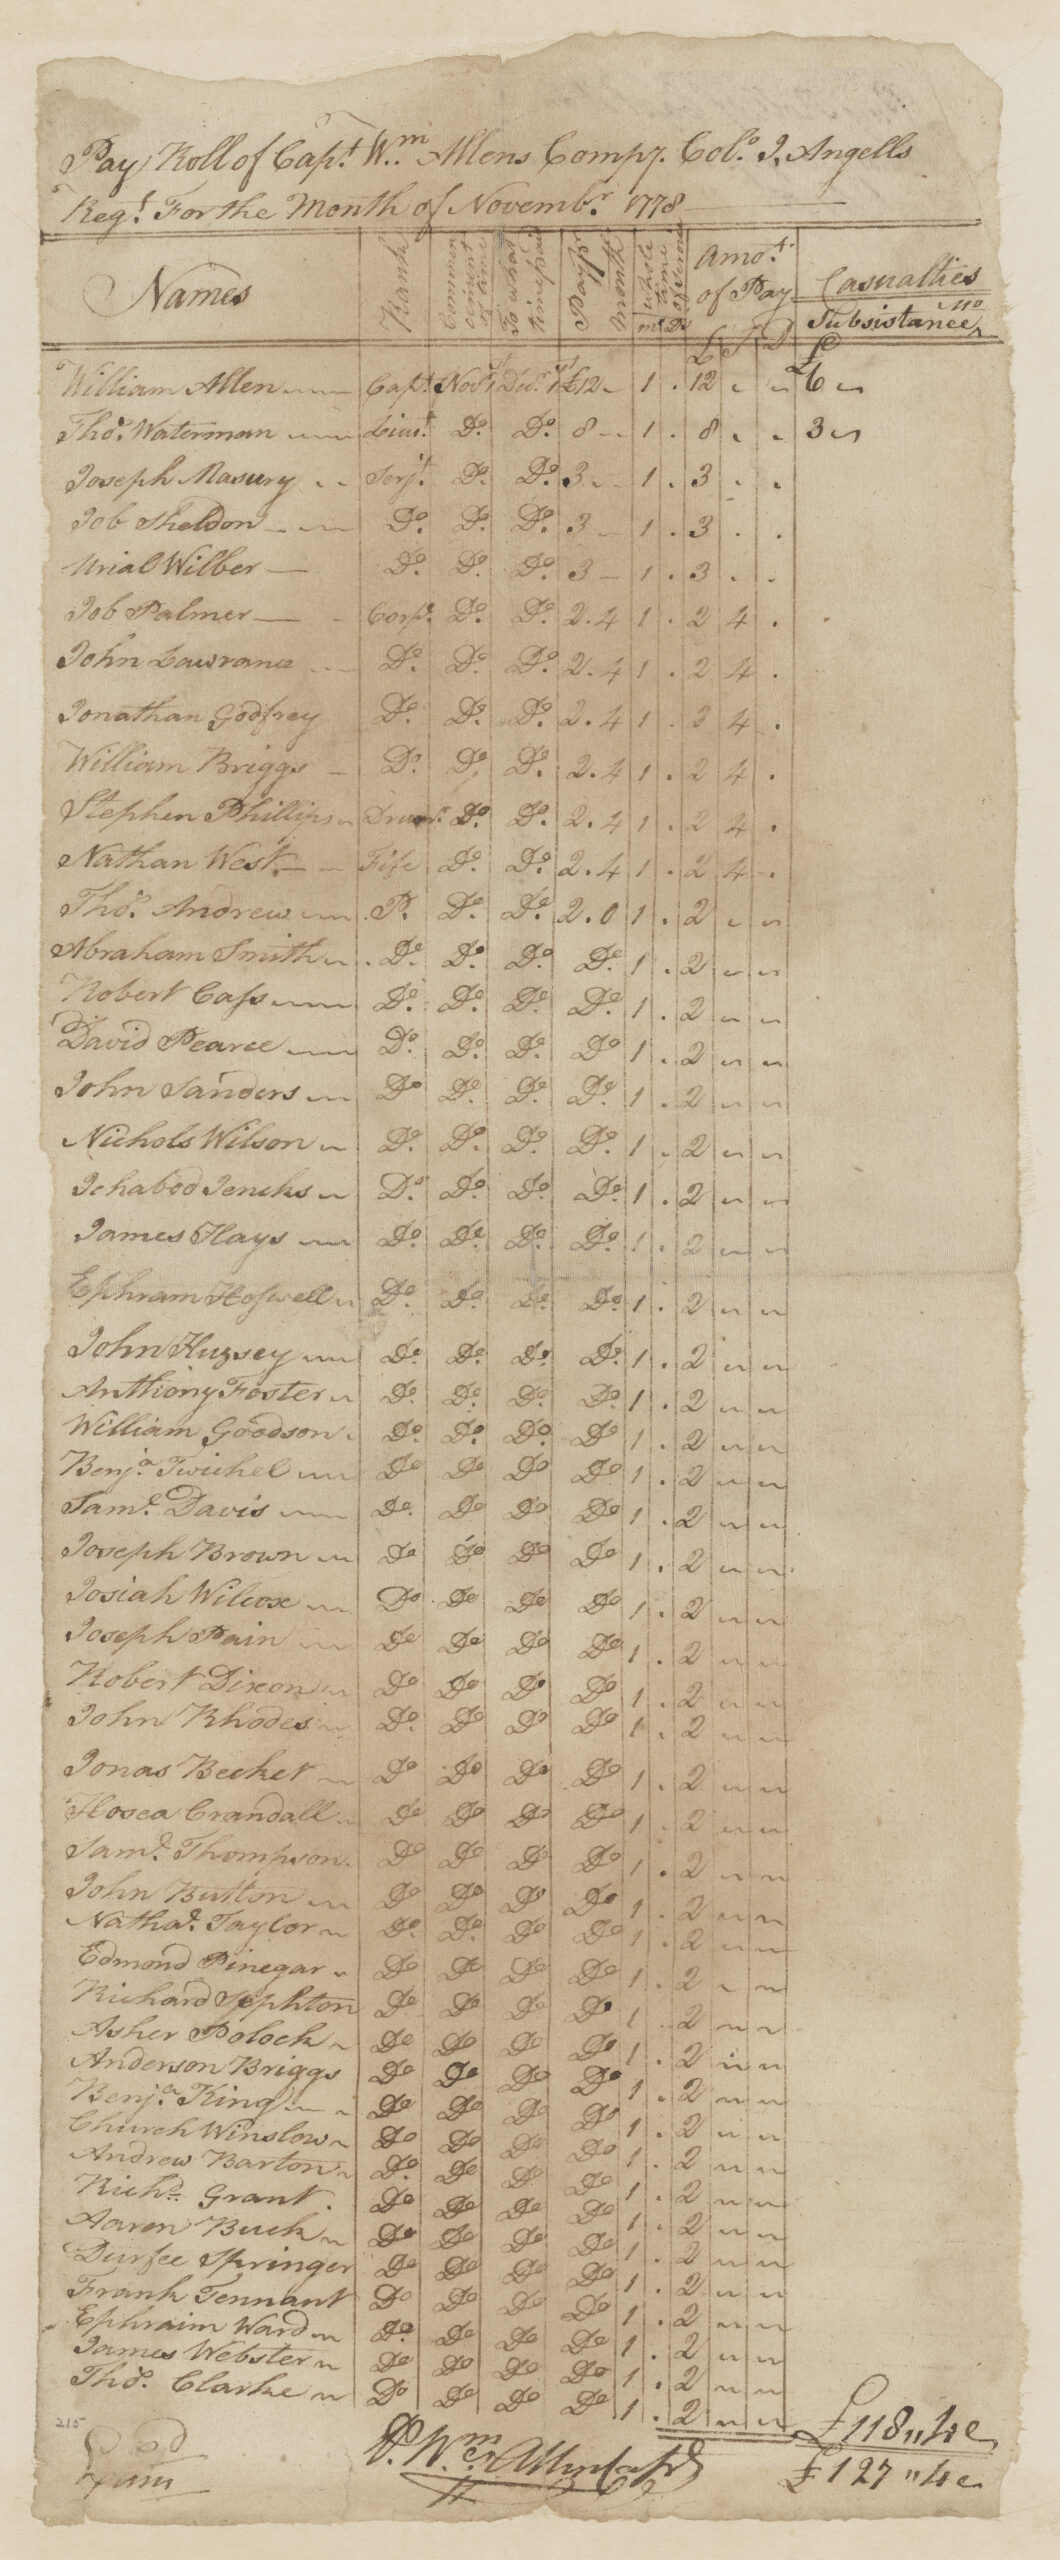 Pay Roll of Capt. Wm. Allens Compy. Colo. I. Angells
Regt. For the Month of Novembr. 1778
Names Rank Commencement of time To what time paid Pay pr month whole time of service Amot. of Pay Casualties
m. D. £ S D Subsistance
William Allen Capt. Novr. 1 Decr. 1st £12 1 . 12 6
Thos. Waterman Liut. Do. Do. 8 1 . 8 3
Joseph Masury Serjt. Do. Do. 3 1 . 3
Job Sheldon Do. Do. Do. 3 1 . 3
Urial Wilber Do. Do. Do. 3 1 . 3
Job Palmer Corp. Do. Do. 2.4 1 . 2 4 .
John Lawrance Do. Do. Do. 2.4 1 . 2 4 .
Jonathan Godfrey Do. Do. Do. 2.4 1 . 2 4 .
William Briggs Do. Do. Do. 2.4 1 . 2 4 .
Stephen Phillips Drumr. Do. Do. 2.4 1 . 2 4 .
Nathan West Fife Do. Do. 2.4 1 . 2 4 .
Thos. Andrew P. Do. Do. 2.0 1 . 2
Abraham Smith Do. Do. Do. Do. 1 . 2
Robert Cass Do. Do. Do. Do. 1 . 2
David Pearce Do. Do. Do. Do 1 . 2
John Sanders Do Do. Do. Do. 1 . 2
Nichols Wilson Do. Do. Do. Do. 1 . 2
Ichabod Jencks Do. Do. Do. Do. 1 . 2
James Hays Do. Do. Do. Do. 1 . 2
Ephram Hoswell Do. Do. Do. Do. 1 . 2
John Huzsey Do. Do. Do. Do. 1 . 2
Anthony Foster Do. Do. Do. Do. 1 . 2
William Goodson Do. Do. Do. Do 1 . 2
Benja. Twichel Do Do Do Do 1 . 2
Saml. Davis Do. Do Do Do 1 . 2
Joseph Brown Do Do Do Do 1 . 2
Josiah Wilcox Do Do Do Do 1 . 2
Joseph Pain Do Do Do Do 1 . 2
Robert Dixon Do Do Do Do 1 . 2
John Rhodes Do. Do Do Do 1 . 2
Jonas Becket Do Do Do Do 1 . 2
Hosea Crandall Do Do Do Do 1 . 2
Saml. Thompson Do Do Do Do 1 . 2
John Button Do Do Do Do 1 . 2
Nathal. Taylor Do. Do. Do Do 1 . 2
Edmond Pinegar Do Do Do Do 1 . 2
Richard Sephton Do Do Do Do 1 . 2
Asher Polock Do Do Do Do 1 . 2
Anderson Briggs Do Do Do Do 1 . 2
Benja. King Do Do Do Do 1 . 2
Church Winslow Do Do Do Do 1 . 2
Andrew Barton Do. Do Do Do 1 . 2
Richd. Grant Do Do Do Do 1 . 2
Aaron Buck Do Do Do Do 1 . 2
Durfee Springer Do Do Do Do 1 . 2
Frank Tennant Do Do Do Do 1 . 2
Ephraim Ward Do. Do Do Do 1 . 2
James Webster Do Do Do Do 1 . 2
Thos. Clarke Do Do Do Do 1 . 2
£118 "4
215 Wm. Allen Capt £127 "4